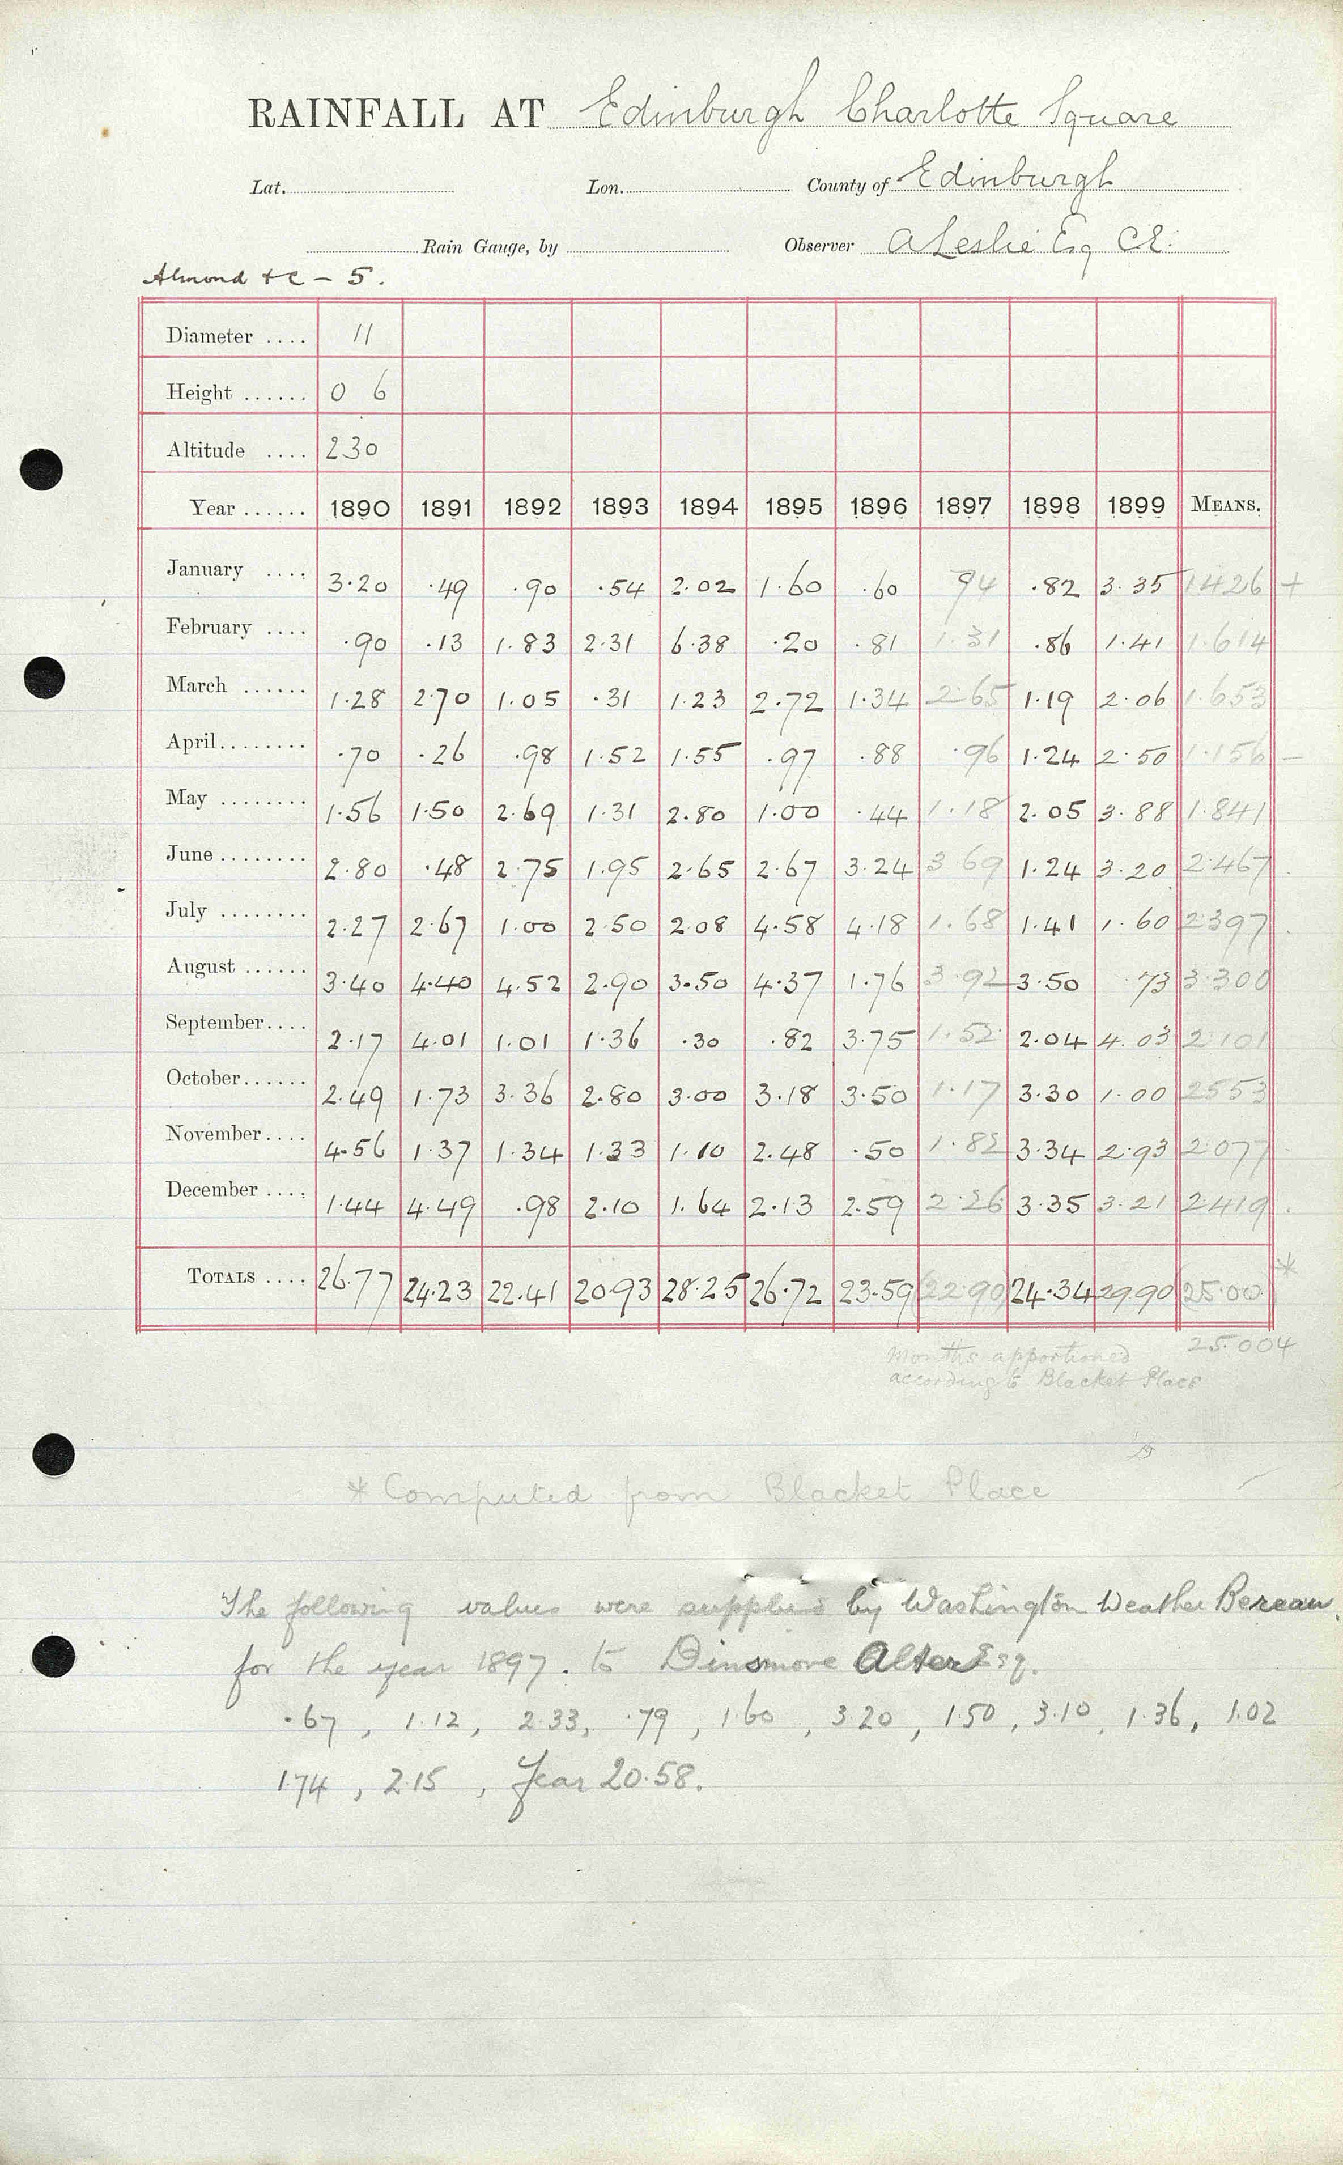 RAINFALL AT Edinburgh Charlotte Square
Lat. Lon. County of Edinburgh
Rain Gauge, by Observer A Leslie Esq CE.
Almond &c - 5.
Diameter .... 11
Height ...... 0 6
Altitude .... 230
Year ...... 1890 1891 1892 1893 1894 1895 1896 1897 1898 1899 MEANS.
January .... 3.20 .49 .90 .54 2.02 1.60 .60 94 .82 3.35 1.426 +
February .... .90 .13 1.83 2.31 6.38 .20 .81 1.31 .86 1.41 1.614
March ...... 1.28 2.70 1.05 .31 1.23 2.72 1.34 2.65 1.19 2.06 1.653
April........ .70 .26 .98 1.52 1.55 .97 .88 .96 1.24 2.50 1.156 -
May ........ 1.56 1.50 2.69 1.31 2.80 1.00 .44 1.18 2.05 3.88 1.841
June ........ 2.80 .48 2.75 1.95 2.65 2.67 3.24 3 69 1.24 3.20 2.467
July ........ 2.27 2.67 1.00 2.50 2.08 4.58 4.18 1.68 1.41 1.60 2.397
August ...... 3.40 4.40 4.52 2.90 3.50 4.37 1.76 3.92 3.50 .73 3.300
September.... 2.17 4.01 1.01 1.36 .30 .82 3.75 1.52 2.04 4.03 2.101
October...... 2.49 1.73 3.36 2.80 3.00 3.18 3.50 1.17 3.30 1.00 2553
November.... 4.56 1.37 1.34 1.33 1.10 2.48 .50 1.82 3.34 2.93 2.077
December .... 1.44 4.49 .98 2.10 1.64 2.13 2.59 2.26 3.35 3.21 2.419
TOTALS .... 26.77 24.23 22.41 20.93 28.25 26.72 23.59 22.90 24.34 29.90 25.00 *
25.004
Months apportioned
according to Blacket Place
* Computed from Blacket Place
The following values were supplied by Washington Weather Bereau
for the year 1897. to Dinsmore Alter Esq.
.67, 1.12, 2.33, .79, 1.60, 3.20, 1.50, 3.10, 1.36, 1.02
1.74, 2.15, Year 20.58.